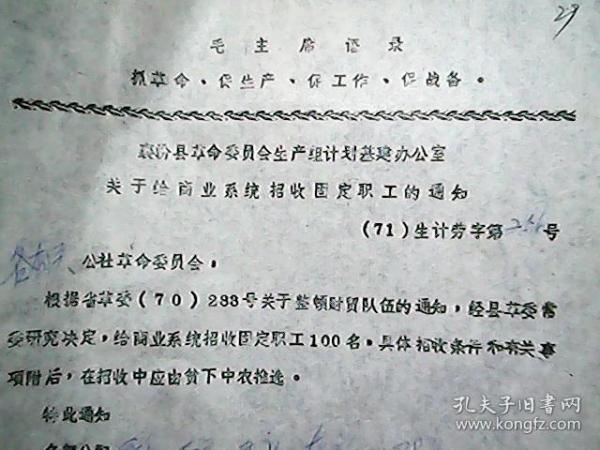 29
毛主席语录
抓革命、促生产、促工作、促战备。
襄汾县革命委员会生产组计划基建办公室
关于给商业系统招收固定职工的通知
(71)生计劳字第 号
各有关 公社革命委员会，
根据省革委(70)233号关于整顿财贸队伍的通知，经县革委常
委研究决定，给商业系统招收固定职工100名。具体招收条件和有关事
项附后，在招收中应由贫下中农推选。
特此通知
孔夫子旧书网
www.kongfz.com